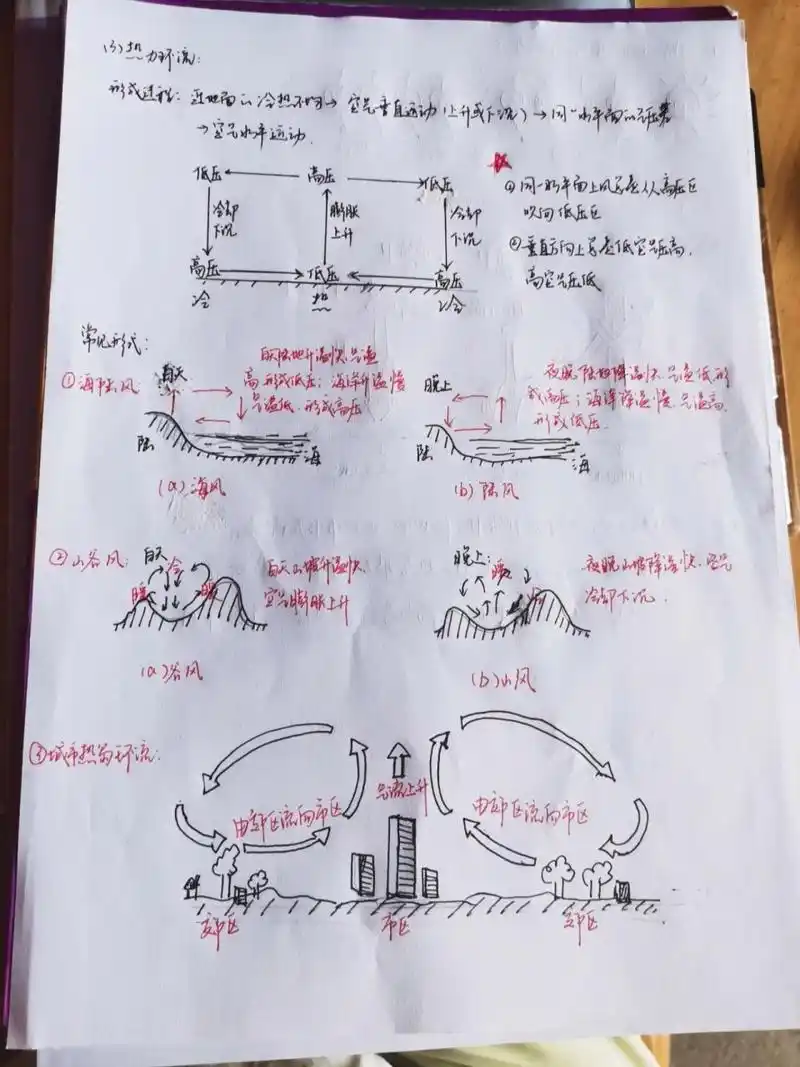 (3)热力环流:
形成过程: 近地面的冷热不均→ 空气垂直运动(上升或下沉)→同一水平面的气压差
→空气水平运动.
低压 高压 低压
冷却下沉 膨胀上升 冷却下沉
高压 低压 高压
冷 热 冷
①同一水平面上风总是从高压区
吹向低压区
②垂直方向上总是低空气压高,
高空气压低
常见形式:
①海陆风:
白天
白天陆地升温快.气温
高形成低压;海洋升温慢
气温低.形成高压
陆 海
(a)海风
晚上
夜晚陆地降温快.气温低.形
成高压;海洋降温慢.气温高.
形成低压.
陆 海
(b)陆风
②山谷风:
白天
冷
暖 暖
白天山坡升温快
空气膨胀上升
(a)谷风
晚上:
暖
夜晚山坡降温快.空气
冷却下沉.
(b)山风
③城市热岛环流:
气流上升
由郊区流向市区 由郊区流向市区
郊区 市区 郊区